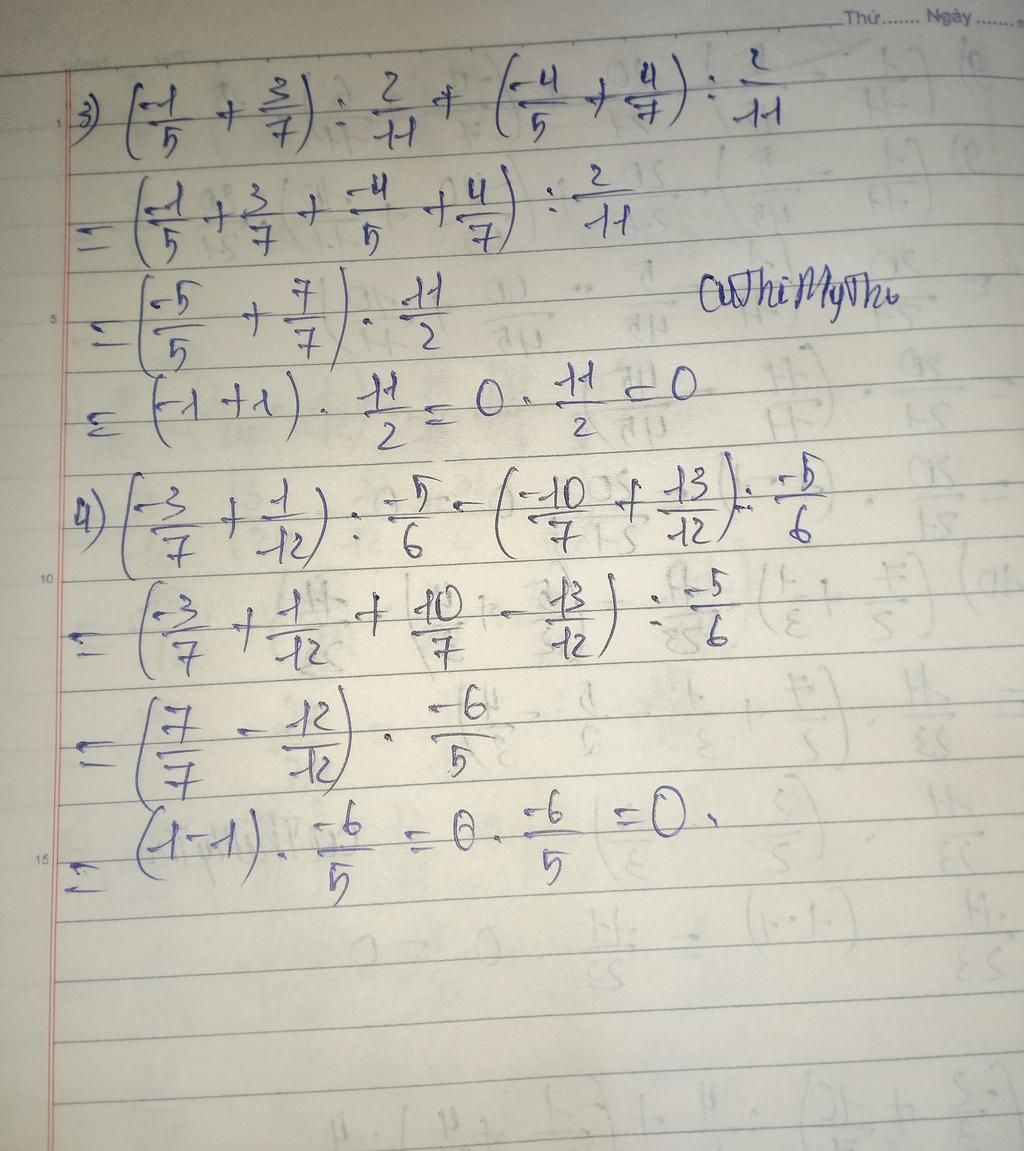 Thứ....... Ngày.......
3) (-1/5 + 3/7) : 2/11 + (-4/5 + 4/7) : 2/11
= (-1/5 + 3/7 + -4/5 + 4/7) : 2/11
= (-5/5 + 7/7) . 11/2
= (-1 + 1) . 11/2 = 0 . 11/2 = 0
4) (-3/7 + 1/12) : -5/6 - (-10/7 + 13/12) : -5/6
= (-3/7 + 1/12 + 10/7 - 13/12) : -5/6
= (7/7 - 12/12) . -6/5
= (1 - 1) . -6/5 = 0 . -6/5 = 0.
1
5
10
15